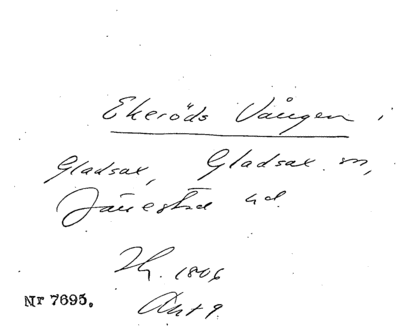 Ekeröds Vången i
Gladsax, Gladsax sn,
Järrestad hd.
Lh. 1806
Nr 7695. Akt 9.